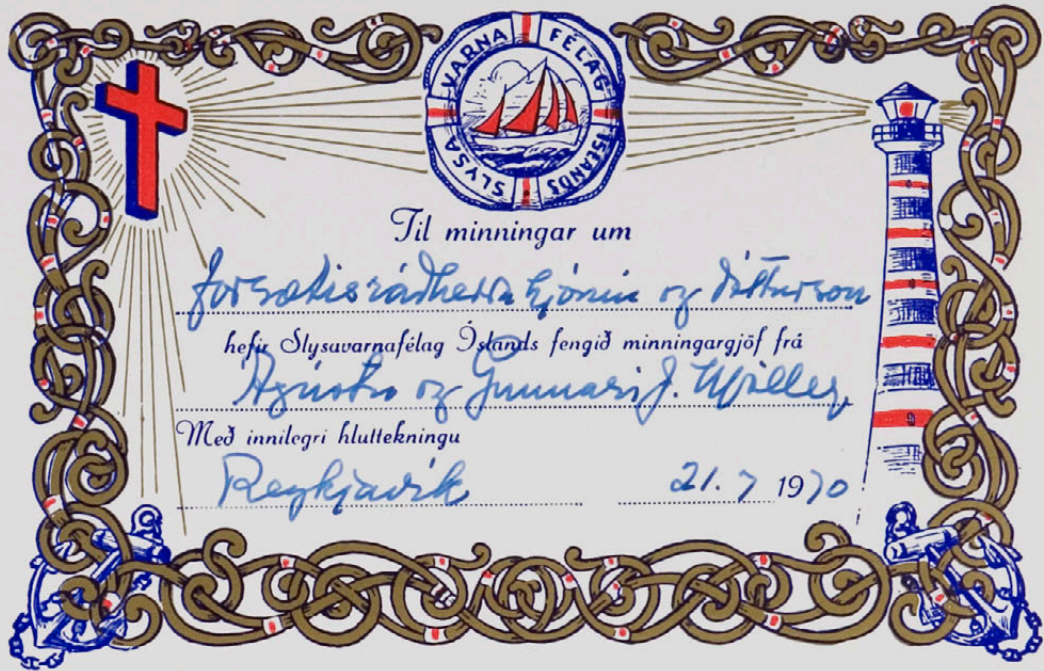 SLYSAVARNAFÉLAG ÍSLANDS
Til minningar um
forsætisráðherra hjónin og dótturson
hefir Slysavarnafélag Íslands fengið minningargjöf frá
Ágústu og Gunnari J. Möller
Með innilegri hluttekningu
Reykjavík 21.7 1970